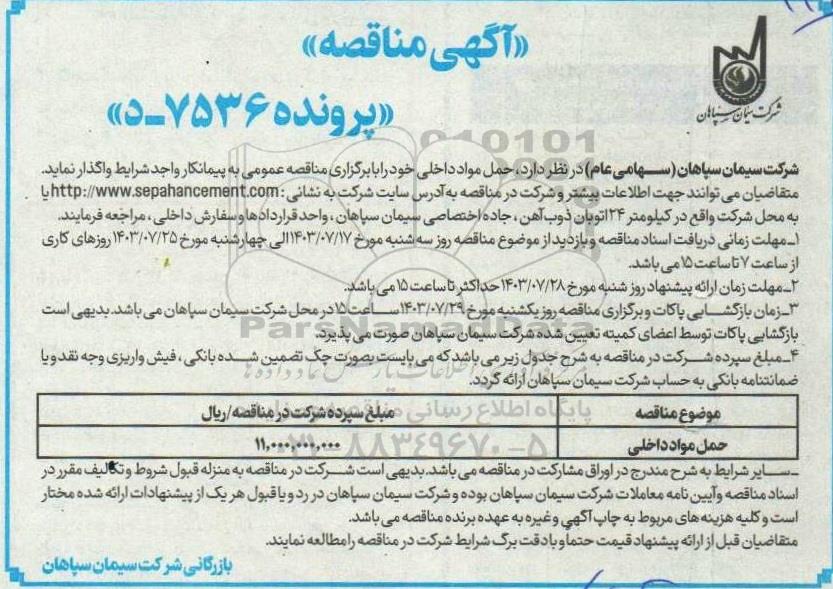 «آگهی مناقصه»
«پرونده ۷۵۳۶-د»
شرکت سیمان سپاهان
شرکت سیمان سپاهان (سهامی عام) در نظر دارد، حمل مواد داخلی خود را با برگزاری مناقصه عمومی به پیمانکار واجد شرایط واگذار نماید.
متقاضیان می توانند جهت اطلاعات بیشتر و شرکت در مناقصه به آدرس سایت شرکت به نشانی: http://www.sepahancement.com یا
به محل شرکت واقع در کیلومتر ۲۴ اتوبان ذوب آهن، جاده اختصاصی سیمان سپاهان، واحد قراردادها و سفارش داخلی، مراجعه فرمایند.
۱ـ مهلت زمانی دریافت اسناد مناقصه و بازدید از موضوع مناقصه روز سه شنبه مورخ ۱۴۰۳/۰۷/۱۷ الی چهارشنبه مورخ ۱۴۰۳/۰۷/۲۵ روزهای کاری
از ساعت ۷ تا ساعت ۱۵ می باشد.
۲ـ مهلت زمان ارائه پیشنهاد روز شنبه مورخ ۱۴۰۳/۰۷/۲۸ حداکثر تا ساعت ۱۵ می باشد.
۳ـ زمان بازگشایی پاکات و برگزاری مناقصه روز یکشنبه مورخ ۱۴۰۳/۰۷/۲۹ ساعت ۱۵ در محل شرکت سیمان سپاهان می باشد. بدیهی است
بازگشایی پاکات توسط اعضای کمیته تعیین شده شرکت سیمان سپاهان صورت می پذیرد.
۴ـ مبلغ سپرده شرکت در مناقصه به شرح جدول زیر می باشد که می بایست بصورت چک تضمین شده بانکی، فیش واریزی وجه نقد و یا
ضمانتنامه بانکی به حساب شرکت سیمان سپاهان ارائه گردد.
موضوع مناقصه مبلغ سپرده شرکت در مناقصه/ریال
حمل مواد داخلی ۱۱,۰۰۰,۰۰۰,۰۰۰
ـ سایر شرایط به شرح مندرج در اوراق مشارکت در مناقصه می باشد. بدیهی است شرکت در مناقصه به منزله قبول شروط و تکالیف مقرر در
اسناد مناقصه و آیین نامه معاملات شرکت سیمان سپاهان بوده و شرکت سیمان سپاهان در رد و یا قبول هر یک از پیشنهادات ارائه شده مختار
است و کلیه هزینه های مربوط به چاپ آگهی و غیره به عهده برنده مناقصه می باشد.
متقاضیان قبل از ارائه پیشنهاد قیمت حتماً و با دقت برگ شرایط شرکت در مناقصه را مطالعه نمایند.
بازرگانی شرکت سیمان سپاهان
ParsNamadData
پایگاه اطلاع رسانی
۰۲۱-۸۸۳۴۹۶۷۰-۵